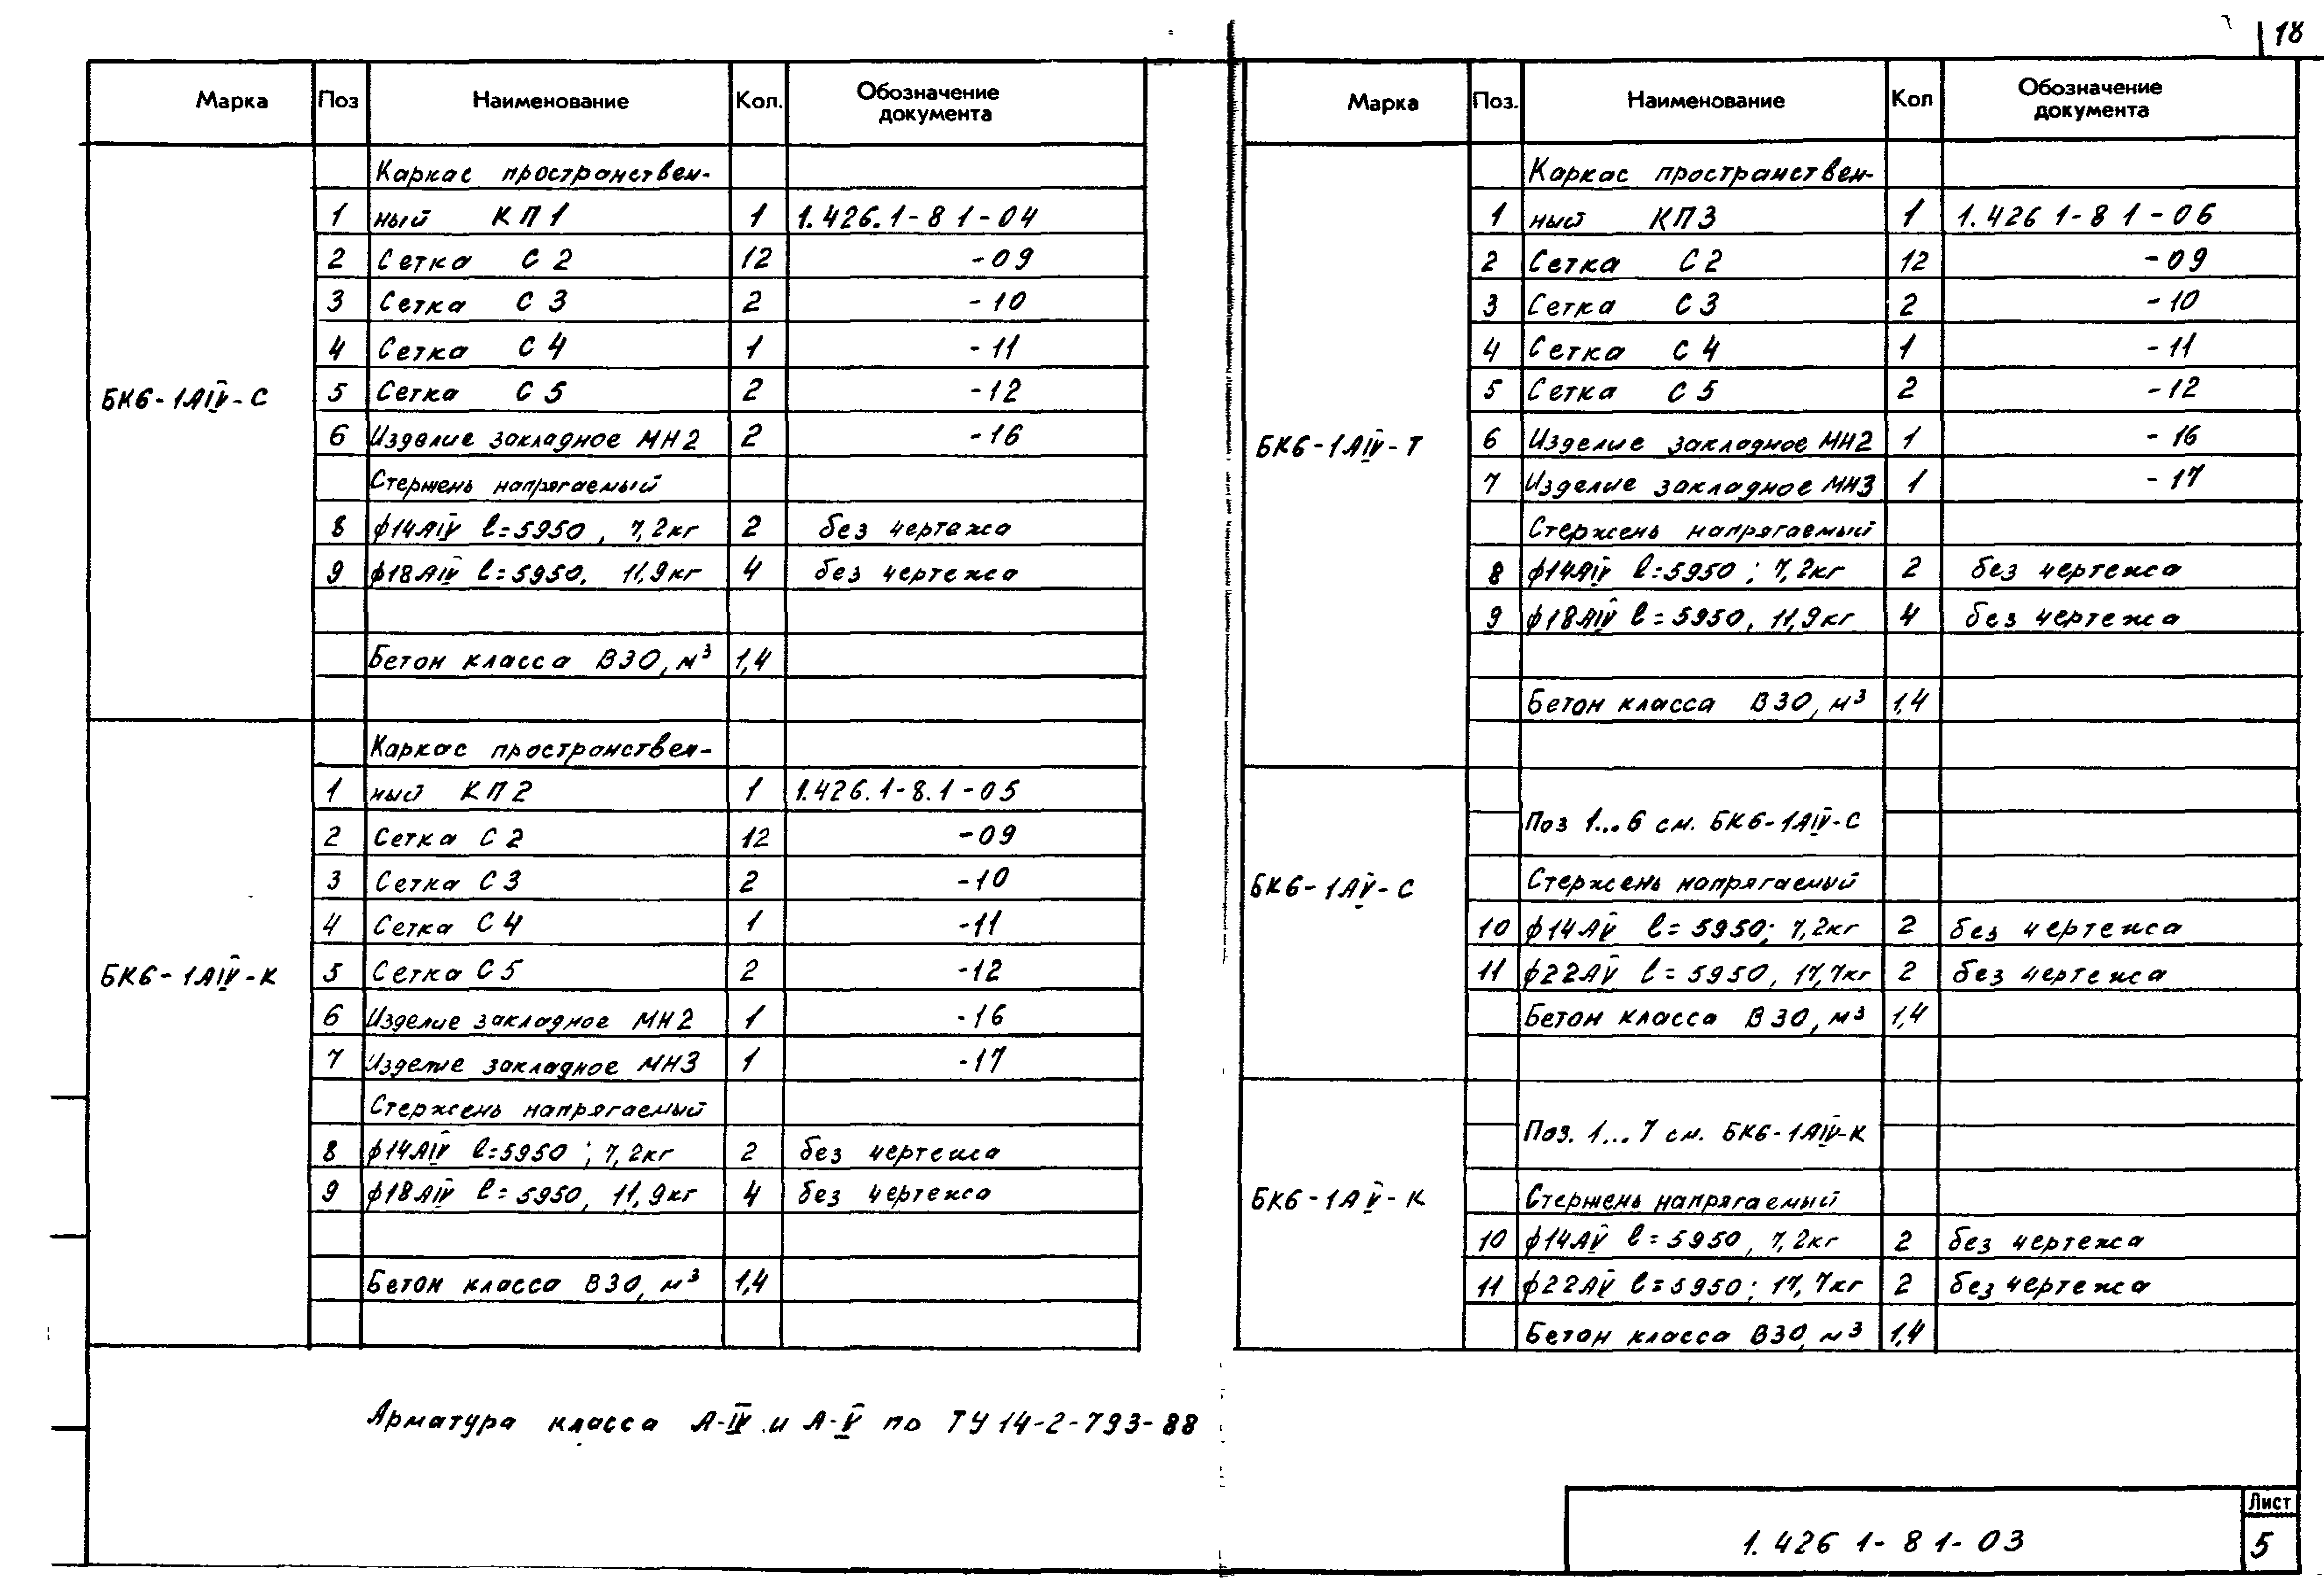 18
Марка Поз Наименование Кол. Обозначение документа
Каркас пространствен-
1 ный КП1 1 1.426.1-8 1-04
2 Сетка С2 12 -09
3 Сетка С3 2 -10
4 Сетка С4 1 -11
БК6-1АIV-С 5 Сетка С5 2 -12
6 Изделие закладное МН2 2 -16
Стержень напрягаемый
8 ф14АIV l=5950, 7,2кг 2 без чертежа
9 ф18АIV l=5950, 11,9кг 4 без чертежа
Бетон класса В30, м³ 1,4
Каркас пространствен-
1 ный КП2 1 1.426.1-8.1-05
2 Сетка С2 12 -09
3 Сетка С3 2 -10
4 Сетка С4 1 -11
БК6-1АIV-К 5 Сетка С5 2 -12
6 Изделие закладное МН2 1 -16
7 Изделие закладное МН3 1 -17
Стержень напрягаемый
8 ф14АIV l=5950; 7,2кг 2 без чертежа
9 ф18АIV l=5950, 11,9кг 4 без чертежа
Бетон класса В30, м³ 1,4
Арматура класса А-IV и А-V по ТУ 14-2-793-88
Марка Поз. Наименование Кол Обозначение документа
Каркас пространствен-
1 ный КП3 1 1.426 1-8 1-06
2 Сетка С2 12 -09
3 Сетка С3 2 -10
4 Сетка С4 1 -11
5 Сетка С5 2 -12
БК6-1АIV-Т 6 Изделие закладное МН2 1 -16
7 Изделие закладное МН3 1 -17
Стержень напрягаемый
8 ф14АIV l=5950; 7,2кг 2 без чертежа
9 ф18АIV l=5950, 11,9кг 4 без чертежа
Бетон класса В30, м³ 1,4
Поз 1...6 см. БК6-1АIV-С
БК6-1АV-С Стержень напрягаемый
10 ф14АV l=5950; 7,2кг 2 без чертежа
11 ф22АV l=5950, 17,7кг 2 без чертежа
Бетон класса В30, м³ 1,4
Поз. 1...7 см. БК6-1АIV-К
БК6-1АV-К Стержень напрягаемый
10 ф14АV l=5950, 7,2кг 2 без чертежа
11 ф22АV l=5950; 17,7кг 2 без чертежа
Бетон класса В30, м³ 1,4
1.426 1-8 1-03
Лист
5